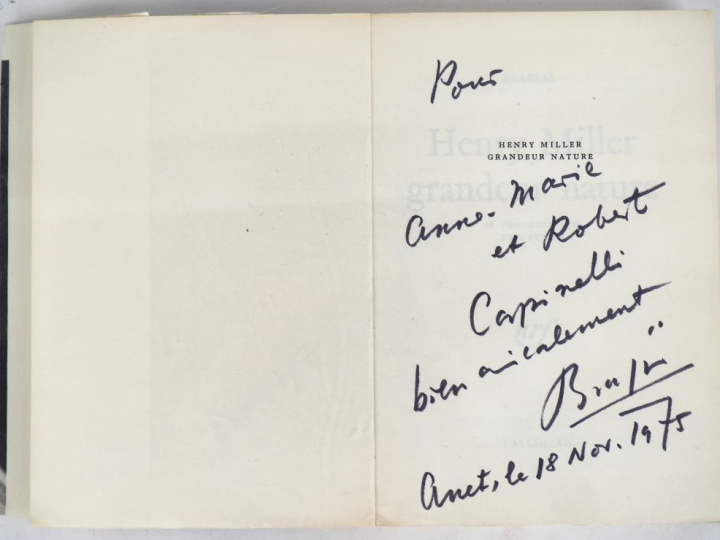 Pour
HENRY MILLER
GRANDEUR NATURE
Henry Miller
grandeur nature
Anne-Marie
et Robert
Carpinelli
bien amicalement
nrf
Brassaï
Anet, le 18 Nov. 1975